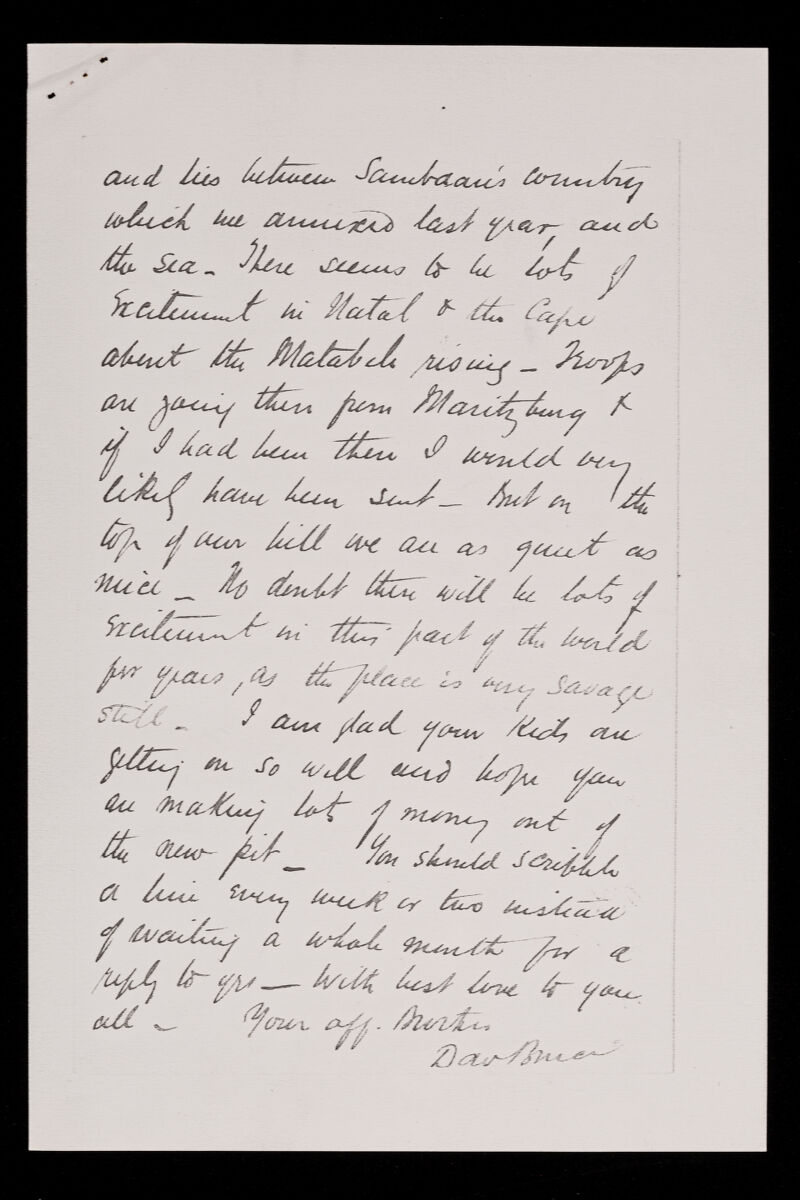 and lies between Sambaan's country
which we annexed last year, and
the sea - There seems to be lots of
Excitement in Natal & the Cape
about the Matabele rising - Troops
are going there from Maritzburg &
if I had been there I would very
likely have been sent - But on the
top of our hill we are as quiet as
mice - No doubt there will be lots of
Excitement in this part of the world
for years, as the place is very savage
still - I am glad your Kids are
getting on so well and hope you
are making lots of money out of
the new pit - You should scribble
a line every week or two instead
of waiting a whole month for a
reply to yrs - With best love to you
all - Your aff. Brother
Dav Bruce